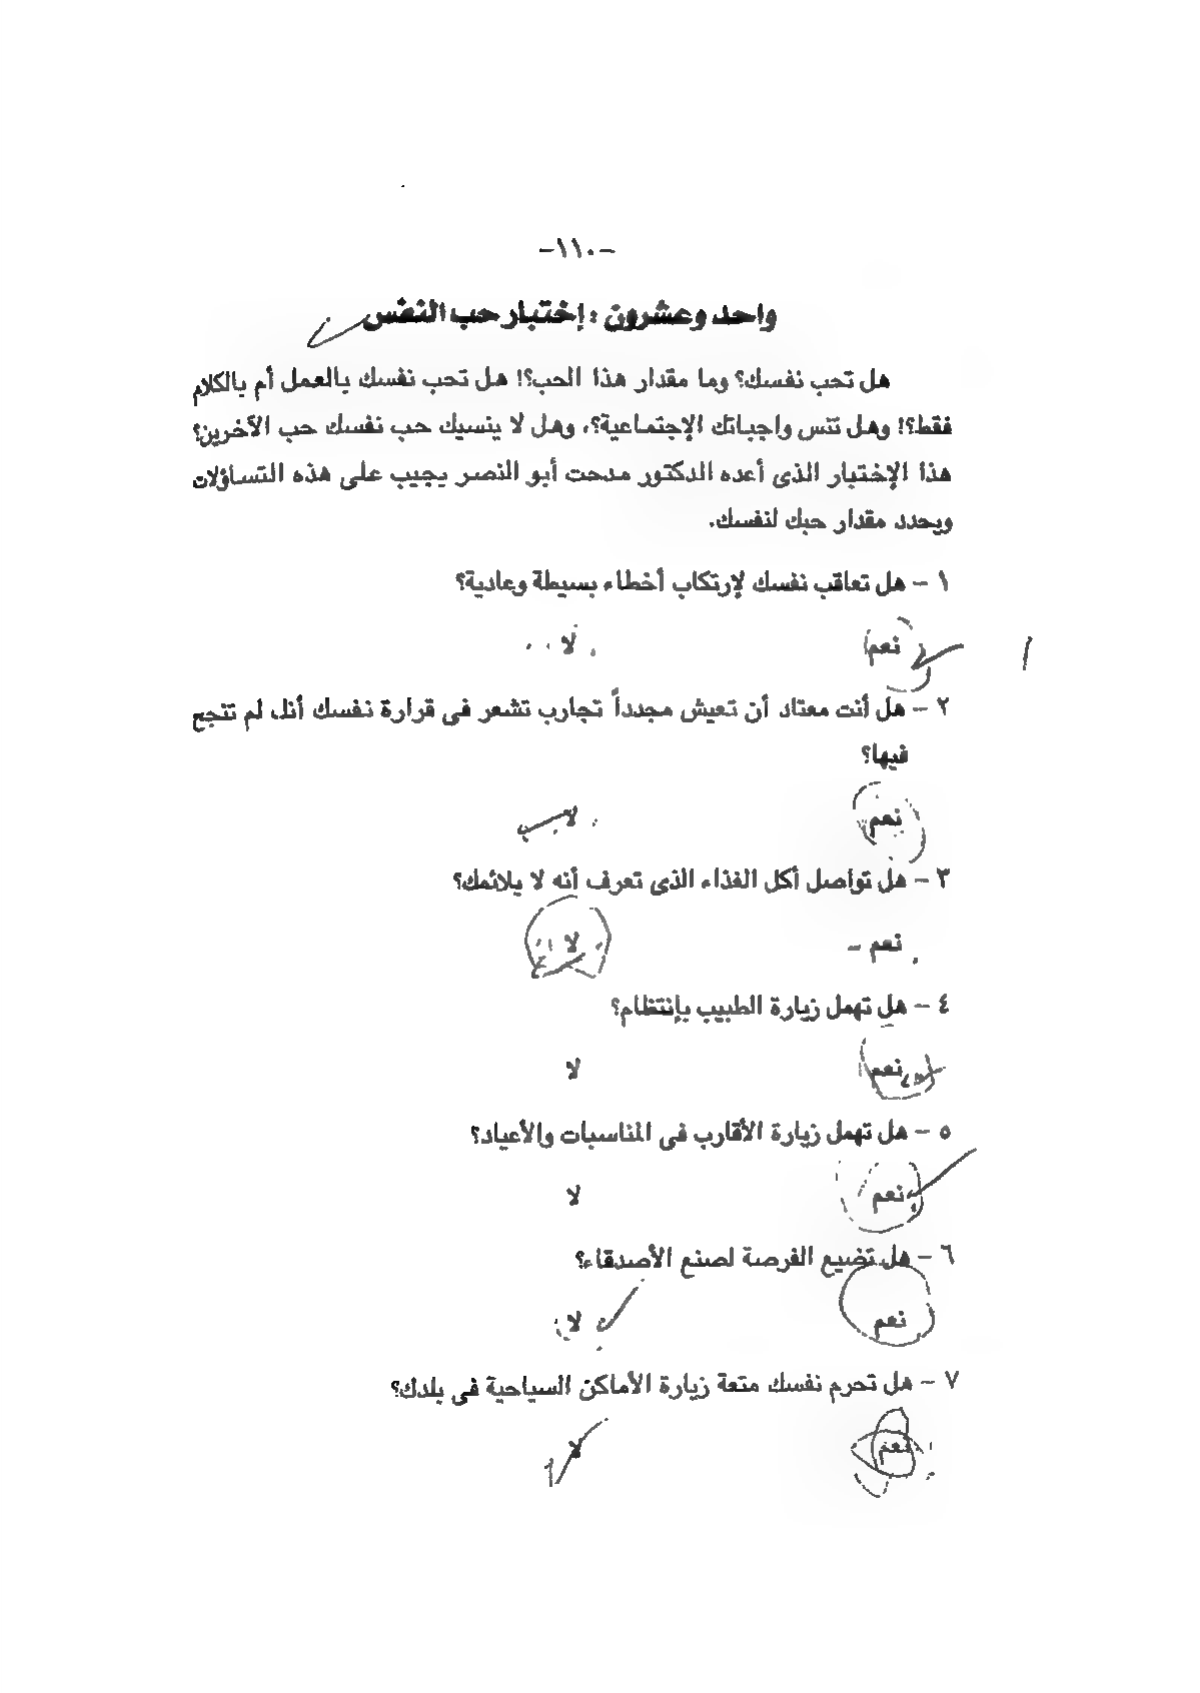 -١١٠-
واحد وعشرون : إختبار حب النفس
هل تحب نفسك؟ وما مقدار هذا الحب؟! هل تحب نفسك بالعمل أم بالكلام
فقط؟! وهل تنس واجباتك الإجتماعية؟، وهل لا ينسيك حب نفسك حب الآخرين؟
هذا الإختبار الذى أعده الدكتور مدحت أبو النصر يجيب على هذه التساؤلات
ويحدد مقدار حبك لنفسك.
١ - هل تعاقب نفسك لإرتكاب أخطاء بسيطة وعادية؟
نعم لا
٢ - هل أنت معتاد أن تعيش مجدداً تجارب تشعر فى قرارة نفسك أنك لم تنجح
فيها؟
نعم لا
٣ - هل تواصل أكل الغذاء الذى تعرف أنه لا يلائمك؟
نعم - لا
٤ - هل تهمل زيارة الطبيب بإنتظام؟
نعم لا
٥ - هل تهمل زيارة الأقارب فى المناسبات والأعياد؟
نعم لا
٦ - هل تضيع الفرصة لصنع الأصدقاء؟
نعم لا
٧ - هل تحرم نفسك متعة زيارة الأماكن السياحية فى بلدك؟
نعم لا